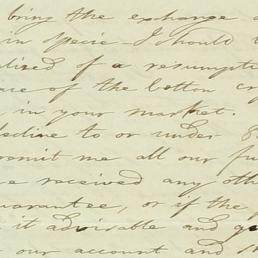 bring the exchange
in specie I should
of a resumption
of the cotton
in your market.
decline to or under 8
remit me all our
received any
guarantee, or if the
it advisable and
our account and